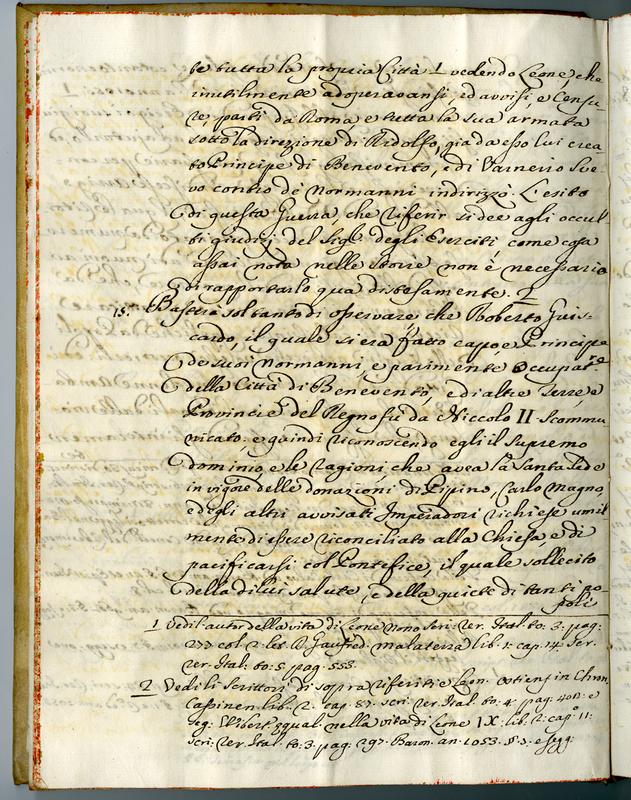 be tutta la propria Città 1 vedendo Leone, che
inutilmente adoperavansi ed avvisi e Censu-
re, partì da Roma e tutta la sua armata
sotto la direzione di Ridolfo, già da esso lui crea
to Principe di Benevento, e di Varneiro Sve-
vo contro de Normanni indirizzò. L'esito
di questa Guerra, che riferir si dee agli occul-
ti giudizj del Sig.e degli Eserciti come cosa
assai nota nelle storie non è necessario
di rapportarlo quà distesamente. 2
15. Basterà soltanto di osservare che Roberto Guis-
cardo, il quale si era fatto capo, e Principe
de suoi Normanni, e parimente Occupat.e
della Città di Benevento, e di altre Terre, e
Provincie del Regno fu da Niccolò II scomu-
nicato; e quindi riconoscendo egli il supremo
dominio, e le ragioni che avea la Santa Sede
in vigore delle donazioni di Pipino, Carlo Magno,
e degli altri avvisati Imperadori richiese umil
mente di essere riconciliato alla Chiesa, e di
pacificarsi col Pontefice, il quale sollecito
della di lui salute, e della quiete di tanti po-
poli
1 Vedi l'autor della vita di Leone nono Scri: rer. Ital. to: 3. pag:
277 col. 2. let. B. Gaufred. Malaterra lib. 1. cap. 14. Scr.
rer. Ital. to: 5. pag. 553.
2 Vedi li Scrittori di sopra riferiti e Leon. Ostiens in Chron.
Cassinen lib. 2. cap. 87. scri. rer. Ital. to: 4. pag. 401: e
seg. Wibert equal. nella vita di Leone IX. lib. 2. cap.o 11:
scri: rer. Ital. to: 3. pag: 297. Baron. an. 1053. §. 3. e segg: